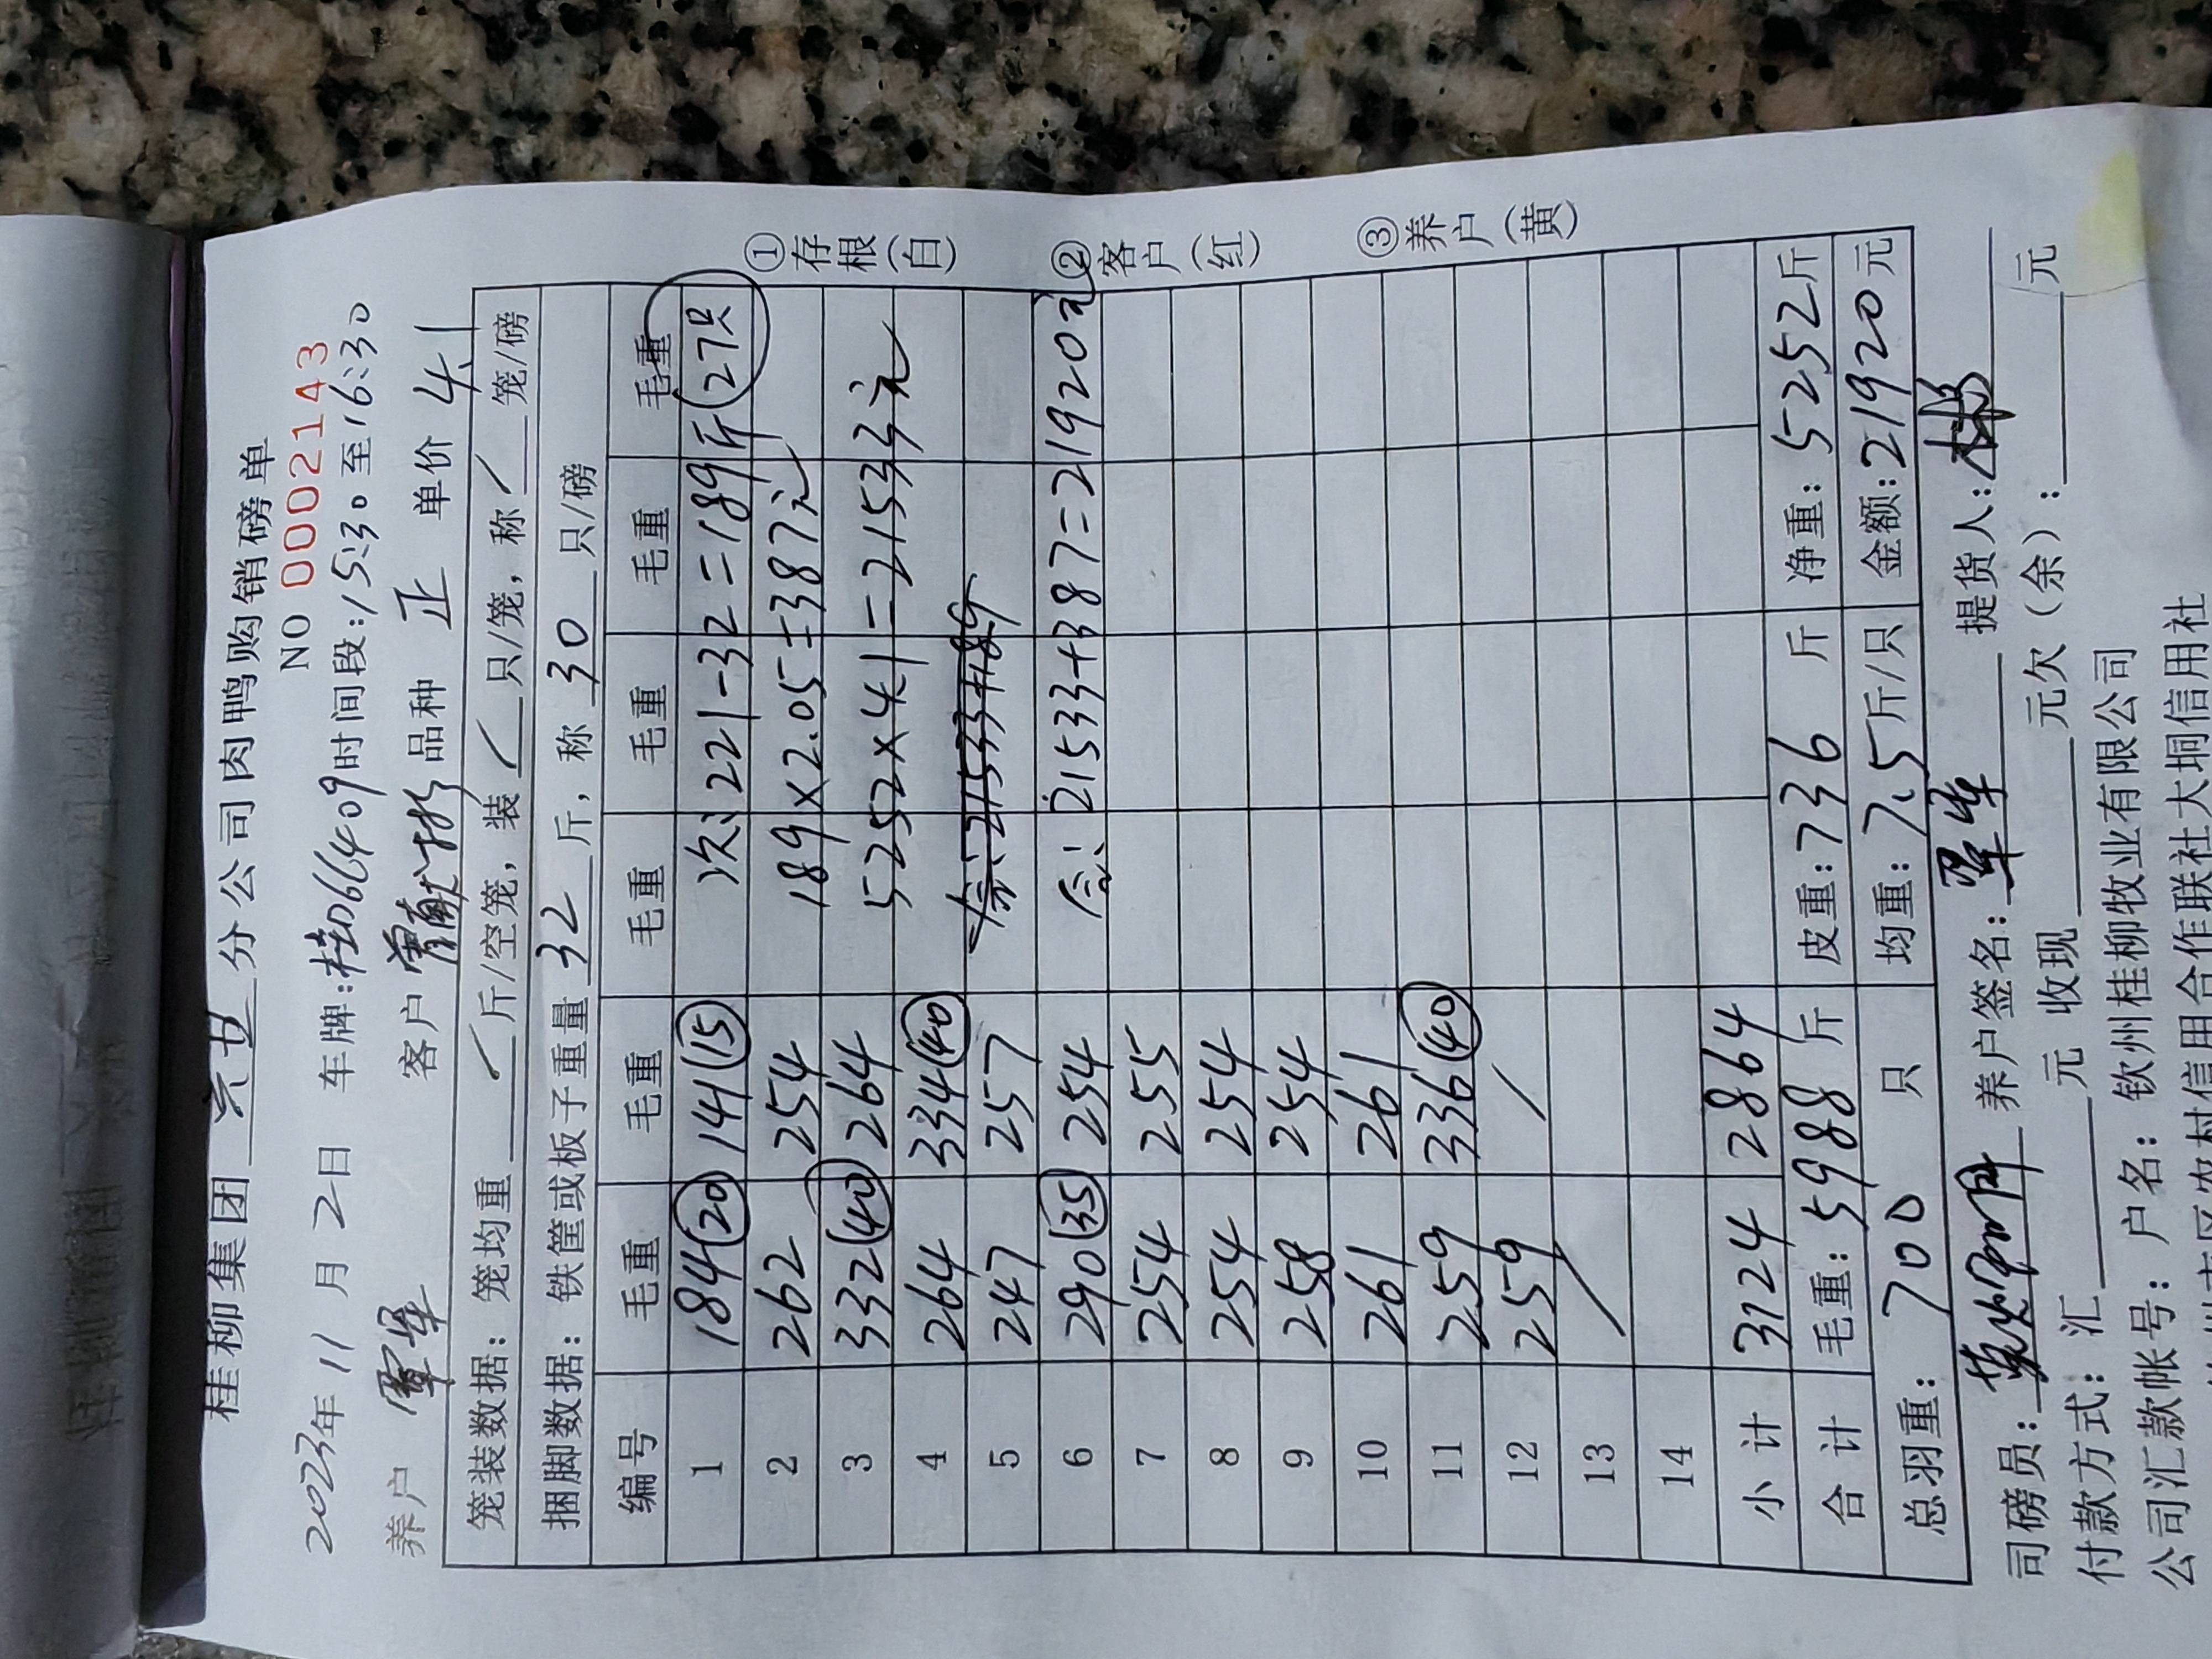 桂柳集团 六廿 分公司肉鸭购销磅单
NO 0002143
2023年 11 月 2 日 车牌:桂D6C409时间段:15:30至16:30
养户 覃军 客户 品种 正 单价 4.1
笼装数据：笼均重 / 斤/空笼，装 / 只/笼，称 / 笼/磅
捆脚数据：铁筐或板子重量 32 斤，称 30 只/磅
编号 毛重 毛重 毛重 毛重 毛重 毛重
1 184(20) 141(15) 次：221-32=189斤(27只)
2 262 254 189×2.05=387元
3 332(40) 264 5252×4.1=21533元
4 264 334(40)
5 247 257 合：21533+189
6 290(35) 254 合：21533+387=21920元
7 254 255
8 254 254
9 258 254
10 261 261
11 259 336(40)
12 259 /
13 /
14
小计 3124 2864
合计 毛重：5988 斤 皮重：736 斤 净重：5252斤
总羽重： 700 只 均重：7.5斤/只 金额：21920元
①存根(白) ②客户(红) ③养户(黄)
司磅员： 养户签名：覃军 提货人：
付款方式：汇 元 收现 元欠（余）： 元
公司汇款帐号：户名：钦州桂柳牧业有限公司
区农村信用合作联社大垌信用社